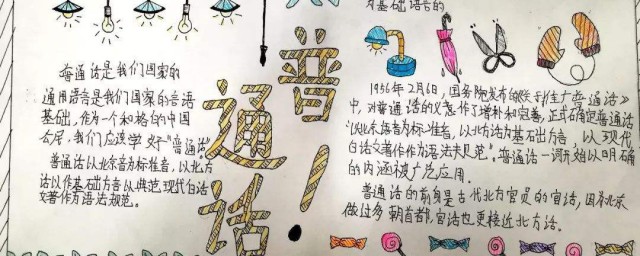 普通话是我们国家的
通用语言是我们国家的言语
基础，作为一个和格的中国
公民，我们应该学好“普通话”
普通话以北京音为标准音，以北方
话以作基础方言以典范现代白话
文著作为语法规范。
普通话！
为基础语言的
1956年2月6日，国务院发布的《关于推广普通话》
中，对普通话的义怎作了增补和完善，正式确定普通话
“以北京语音为标准音，以北方话为基础方言，以现代
白话文著作作为语法夫规范”。普通话一词开始以明确
的内涵被广泛应用。
普通话的前身是古代北方官员的官话，因为北京
做过多朝首都，官话也更接近北方话。